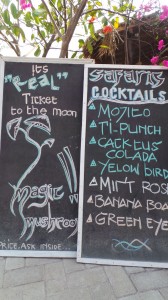 its
"Real"
Ticket
to the moon
Magic
Mushroom
PRICE. ASK INSIDE...
Safari's
COCKTAILS
MOJITO
TI-PUNCH
CACKTUS
COLADA
YELOW BIRD
MINT ROSE
BANANA BOA
GREEN EYE